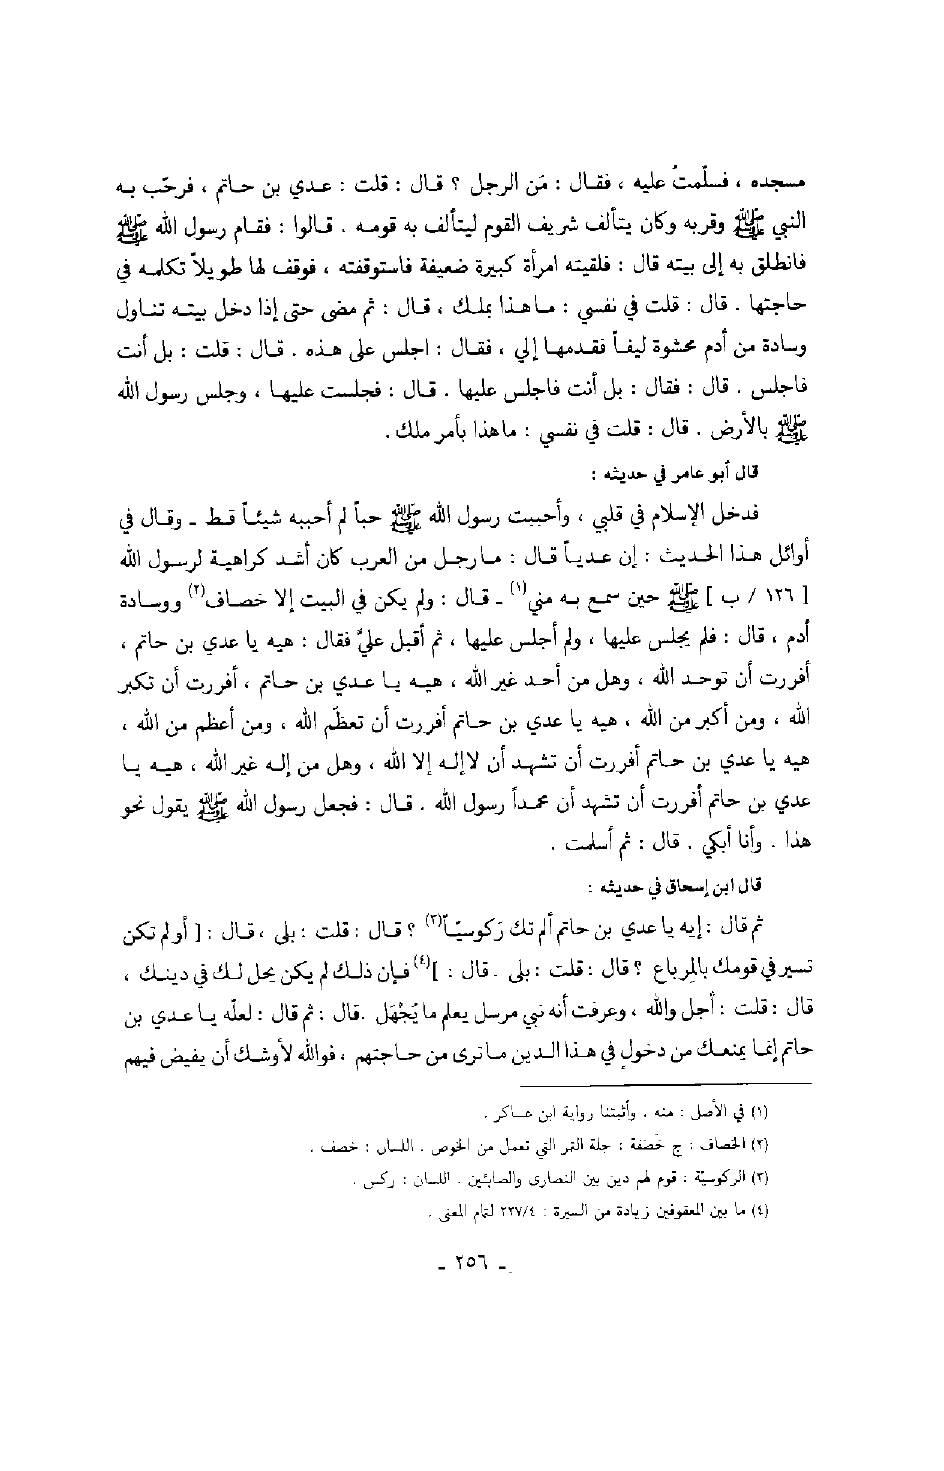 مسجده ، فسلّمتُ عليه ، فقال : مَن الرجل ؟ قال : قلت : عدي بن حاتم ، فرحّب به
النبي ﷺ وقربه وكان يتألف شريف القوم ليتألف به قومه . قالوا : فقام رسول الله ﷺ
فانطلق به إلى بيته قال : فلقيته امرأة كبيرة ضعيفة فاستوقفته ، فوقف لها طويلاً تكلمه في
حاجتها . قال : قلت في نفسي : ماهذا بملك ، قال : ثم مضى حتى إذا دخل بيته تناول
وسادة من أدم محشوة ليفاً فقدمها إلي ، فقال : اجلس على هذه . قال : قلت : بل أنت
فاجلس . قال : فقال : بل أنت فاجلس عليها . قال : فجلست عليها ، وجلس رسول الله
ﷺ بالأرض . قال : قلت في نفسي : ماهذا بأمر ملك .
قال أبو عامر في حديثه :
فدخل الإسلام في قلبي ، وأحببت رسول الله ﷺ حباً لم أحببه شيئاً قط ـ وقال في
أوائل هذا الحديث : إن عدياً قال : مارجل من العرب كان أشد كراهية لرسول الله
[ ١٢٦ / ب ] ﷺ حين سمع به مني(١) ـ قال : ولم يكن في البيت إلا خصاف(٢) ووسادة
أدم ، قال : فلم يجلس عليها ، ولم أجلس عليها ، ثم أقبل عليّ فقال : هيه يا عدي بن حاتم ،
أفررت أن توحد الله ، وهل من أحد غير الله ، هيه يا عدي بن حاتم ، أفررت أن تكبر
الله ، ومن أكبر من الله ، هيه يا عدي بن حاتم أفررت أن تعظّم الله ، ومن أعظم من الله ،
هيه يا عدي بن حاتم أفررت أن تشهد أن لاإله إلا الله ، وهل من إله غير الله ، هيه يا
عدي بن حاتم أفررت أن تشهد أن محمداً رسول الله . قال : فجعل رسول الله ﷺ يقول نحو
هذا . وأنا أبكي . قال : ثم أسلمت .
قال ابن إسحاق في حديثه :
ثم قال : إيه يا عدي بن حاتم ألم تك رَكوسيّاً(٣) ؟ قال : قلت : بلى ، قال : [ أولم تكن
تسير في قومك بالمِرباع ؟ قال : قلت : بلى . قال : ](٤) فإن ذلك لم يكن يحل لك في دينك ،
قال : قلت : أجل والله ، وعرفت أنه نبي مرسل يعلم ما يُجْهَل . قال : ثم قال : لعله يا عدي بن
حاتم إنما يمنعك من دخولٍ في هذا الدين ماترى من حاجتهم ، فوالله لأوشك أن يفيض فيهم
(١) في الأصل : منه . وأثبتنا رواية ابن عساكر .
(٢) الخصاف : ج خَصَفة : جلة التمر التي تعمل من الخوص . اللسان : خصف .
(٣) الركوسيّة : قوم لهم دين بين النصارى والصابئين . اللسان : ركس .
(٤) ما بين المعقوفين زيادة من السيرة : ٢٢٧/٤ لتمام المعنى .
ـ ٢٥٦ ـ